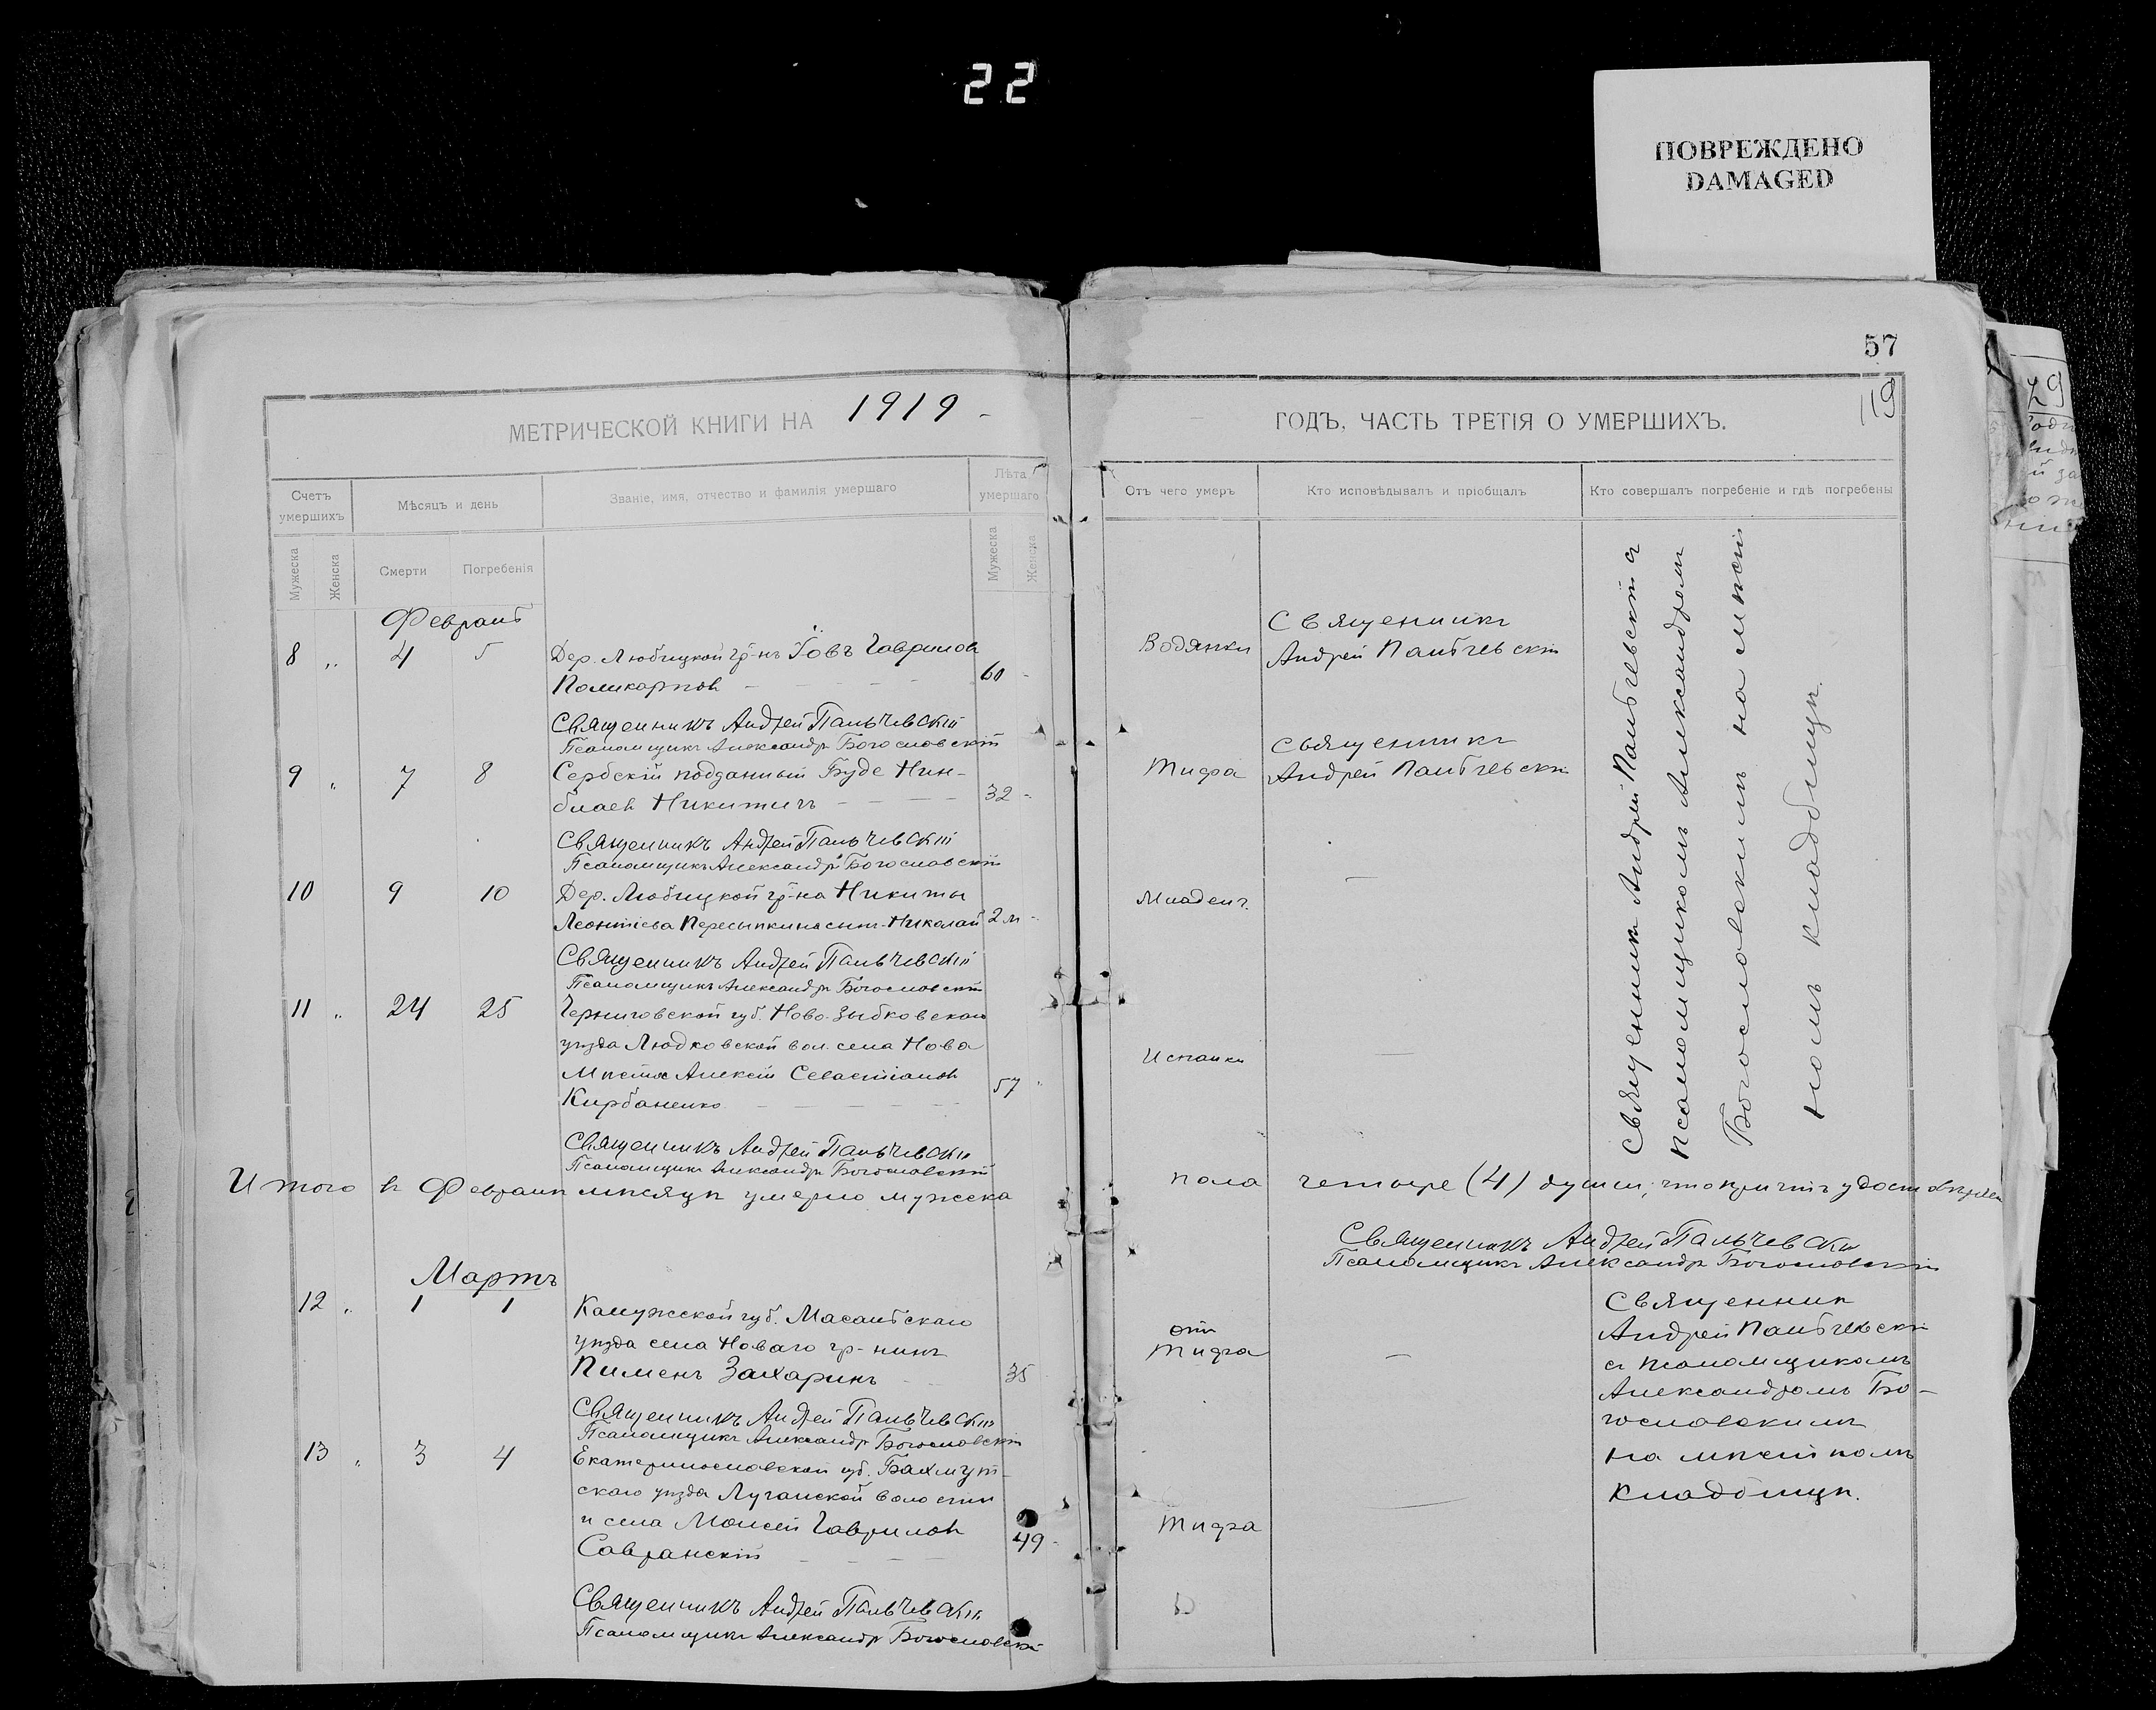 22
ПОВРЕЖДЕНО
DAMAGED
57
119
29
МЕТРИЧЕСКОЙ КНИГИ НА 1919
ГОДЪ, ЧАСТЬ ТРЕТІЯ О УМЕРШИХЪ.
Счетъ умершихъ
Мѣсяцъ и день
Званіе, имя, отчество и фамилія умершаго
Лѣта умершаго
Отъ чего умеръ
Кто исповѣдывалъ и пріобщалъ
Кто совершалъ погребеніе и гдѣ погребены
Мужеска
Женска
Смерти
Погребенія
Мужеска
Женска
Февраль
8 „ 4 5 Дер. Любицкой гр-нъ Іовъ Гавриловъ
Поликарповъ 60
Водянки
Священникъ
Андрей Пальчевскій
Священникъ Андрей Пальчевскій
Псаломщикъ Александръ Богословскій
9 „ 7 8 Сербскій подданный Буде Нин-
Никитичъ 32
Тифа
Священникъ
Андрей Пальчевскій
Священникъ Андрей Пальчевскій
Псаломщикъ Александръ Богословскій
10 9 10 Дер. Любицкой гр-на Никиты
Леонтіева Пересыпкина сынъ Николай 2 м
Младенч.
Священникъ Андрей Пальчевскій
Псаломщикъ Александръ Богословскій
11 „ 24 25 Черниговской губ. Ново-Зыбковскаго
уѣзда Людковской вол. села Ново
Мѣста Алексій Севастіановъ
Кирбаненко 57
Испанки
Священникъ Андрей Пальчевскій
Псаломщикъ Александръ Богословскій
Священникъ Андрей Пальчевскій съ
псаломщикомъ Александромъ
Богословскимъ на мѣстн
номъ кладбищѣ.
Итого въ Февралѣ мѣсяцѣ умерло мужеска
пола четыре (4) души, что
Священникъ Андрей Пальчевскій
Псаломщикъ Александръ Богословскій
Мартъ
12 „ 1 1 Калужской губ. Масальскаго
уѣзда села Новаго гр-нинъ
Пименъ Захаринъ 35
отъ
Тифа
Священникъ Андрей Пальчевскій
Псаломщикъ Александръ Богословскій
13 „ 3 4 Екатеринославской губ. Бахмут-
скаго уѣзда Луганской волости
и села Моисей Гавриловъ
Савранскій 49
Тифа
Священникъ Андрей Пальчевскій
Псаломщикъ Александръ Богословскій
Священникъ
Андрей Пальчевскій
съ псаломщикомъ
Александромъ Бо-
гословскимъ
на мѣстномъ
кладбищѣ.